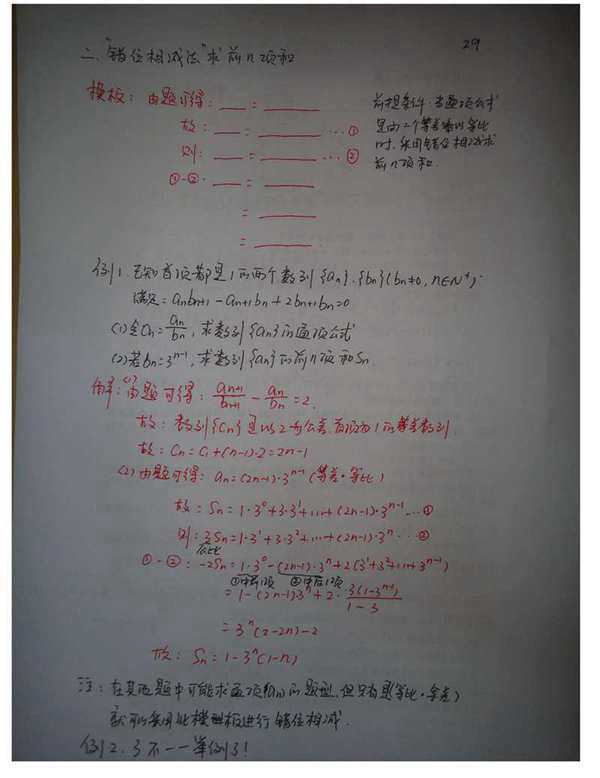 29
二、"错位相减法"求前n项和
模板：由题可得：___ = ______
故：___ = ______ …①
则：___ = ______ …②
①-②：___ = ______
= ______
= ______
前提条件：当通项公式
是由一个等差乘以等比
时，采用错位相减求
前n项和.
例1. 已知首项都是1的两个数列{an}.{bn}(bn≠0, n∈N*).
满足：anbn+1-an+1bn+2bn+1bn=0
(1)令Cn=an/bn，求数列{an}的通项公式
(2)若bn=3^{n-1}，求数列{an}的前n项和Sn.
解：(1)由题可得：an+1/bn+1 - an/bn = 2.
故：数列{Cn}是以2为公差，首项为1的等差数列.
故：Cn=C1+(n-1)·2=2n-1
(2)由题可得：an=(2n-1)·3^{n-1}(等差·等比)
故：Sn=1·3^0+3·3^1+...+(2n-1)·3^{n-1}…①
则：3Sn=1·3^1+3·3^2+...+(2n-1)·3^n…②
①-②：-2Sn=1·3^0-(2n-1)·3^n+2(3^1+3^2+...+3^{n-1})
=1-(2n-1)3^n+2·3(1-3^{n-1})/1-3
=3^n(2-2n)-2
故：Sn=1-3^n(1-n)
注：在其他题中可能求通项(an)的题型，但只有是(等比·等差)
就可以采用此模型板进行错位相减.